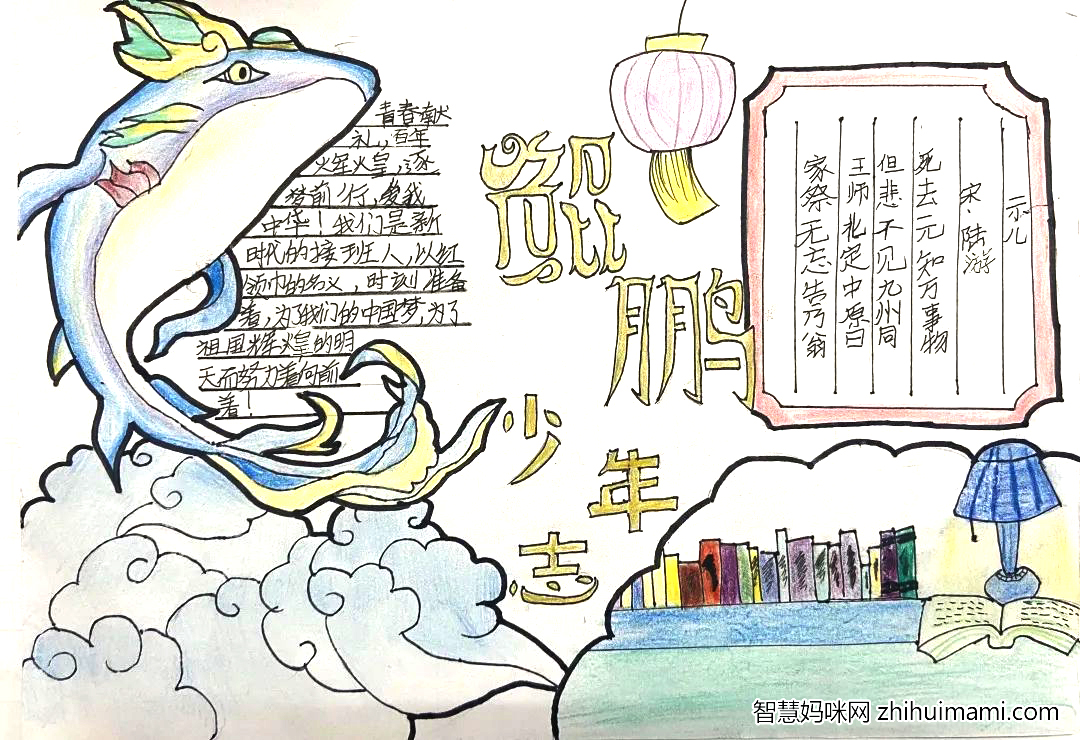 青春献
礼，百年
火军火皇，逐
梦前行，爱我
中华！我们是新
时代的接班人，以红
领巾的名义，时刻准备
着，为了我们的中国梦，为了
祖国辉煌的明
天而努力着向前
着！
鲲
鹏
少
年
志
示儿
宋·陆游
死去元知万事物
但悲不见九州同
王师北定中原日
家祭无忘告乃翁
智慧妈咪网 zhihuimami.com